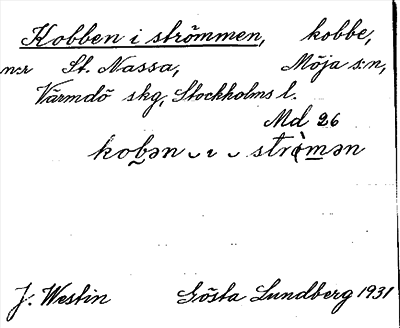 Kobben i strömmen, kobbe,
n:r St. Nassa, Möja s:n,
Värmdö skg, Stockholms l.
Md 26
kob̲ən ᴗ ı ᴗ strö̀m̲ən
J. Westin Gösta Lundberg 1931